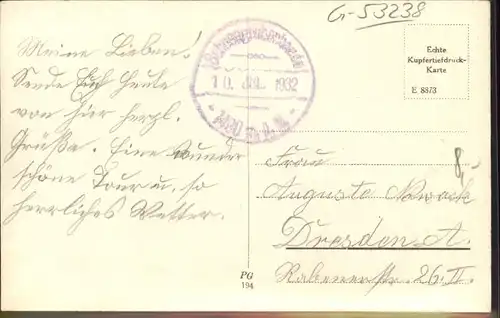 G-53238
Meine Lieben!
Sende Euch heute
von hier herzl.
Grüße. Eine wunder
schöne Tour u. so
herrliches Wetter.
10. JUL. 1932
Echte
Kupfertiefdruck-
Karte
E 8873
8,-
Frau
Auguste Nowack
Dresden A.
Rabenerstr. 26 II.
PG
194